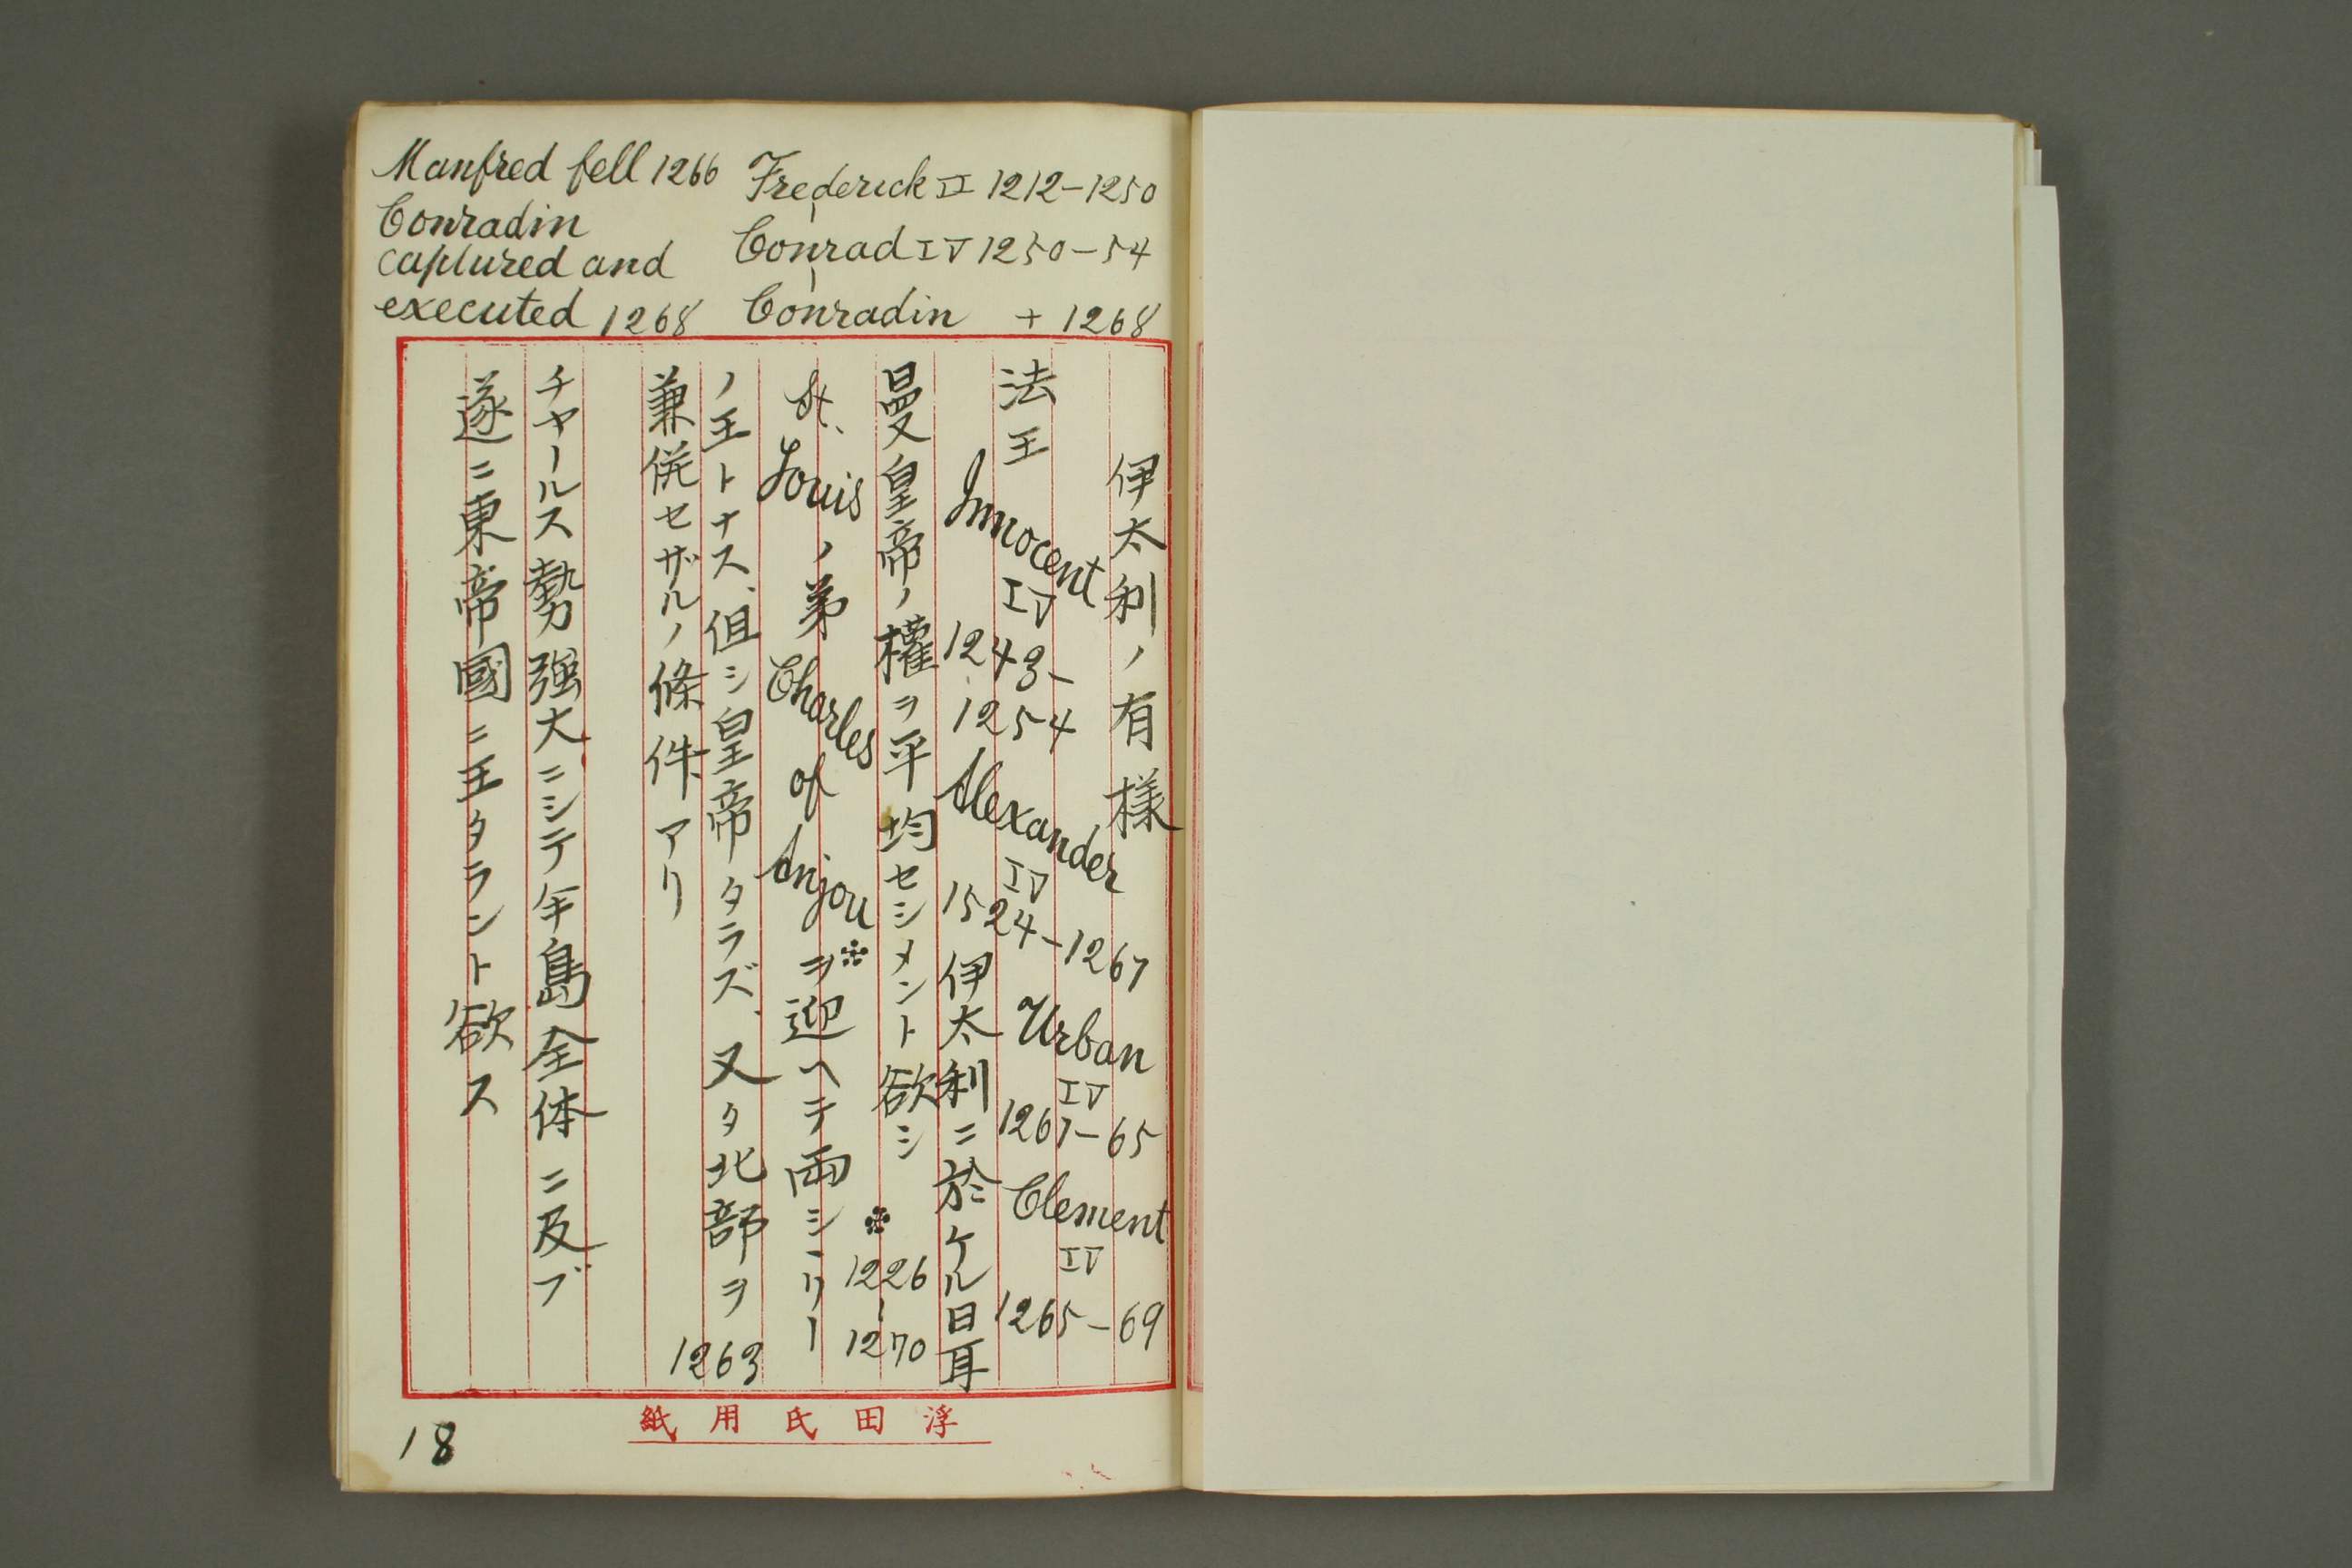 Manfred fell 1266
Conradin
captured and
executed 1268
Frederick II 1212-1250
Conrad IV 1250-54
Conradin + 1268
伊太利ノ有様
法王 Innocent IV 1243-1254 Alexander IV 1524-1267 Urban IV 1261-65 Clement IV 1265-69
伊太利ニ於ケル日耳
曼皇帝ノ權ヲ平均セシメント欲シ ※ 1226-1270
St. Louis ノ弟 Charles of Anjou ※ヲ迎ヘテ両シヽリー
ノ王トナス、但シ皇帝タラズ、又タ北部ヲ
兼併セザルノ條件アリ 1263
チヤールス勢强大ニシテ年島全体ニ及ブ
遂ニ東帝國ニ王タラント欲ス
浮田氏用紙
18